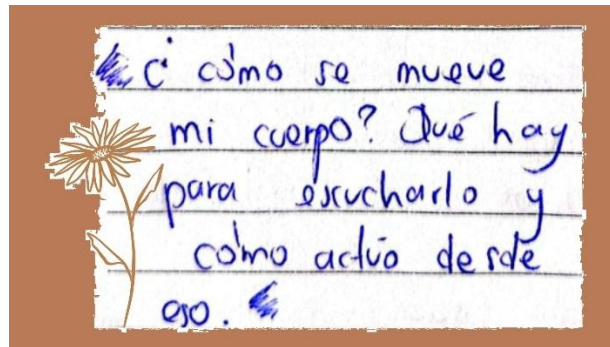 ¿ cómo se mueve
mi cuerpo? Qué hay
para escucharlo y
cómo actúo desde
eso.